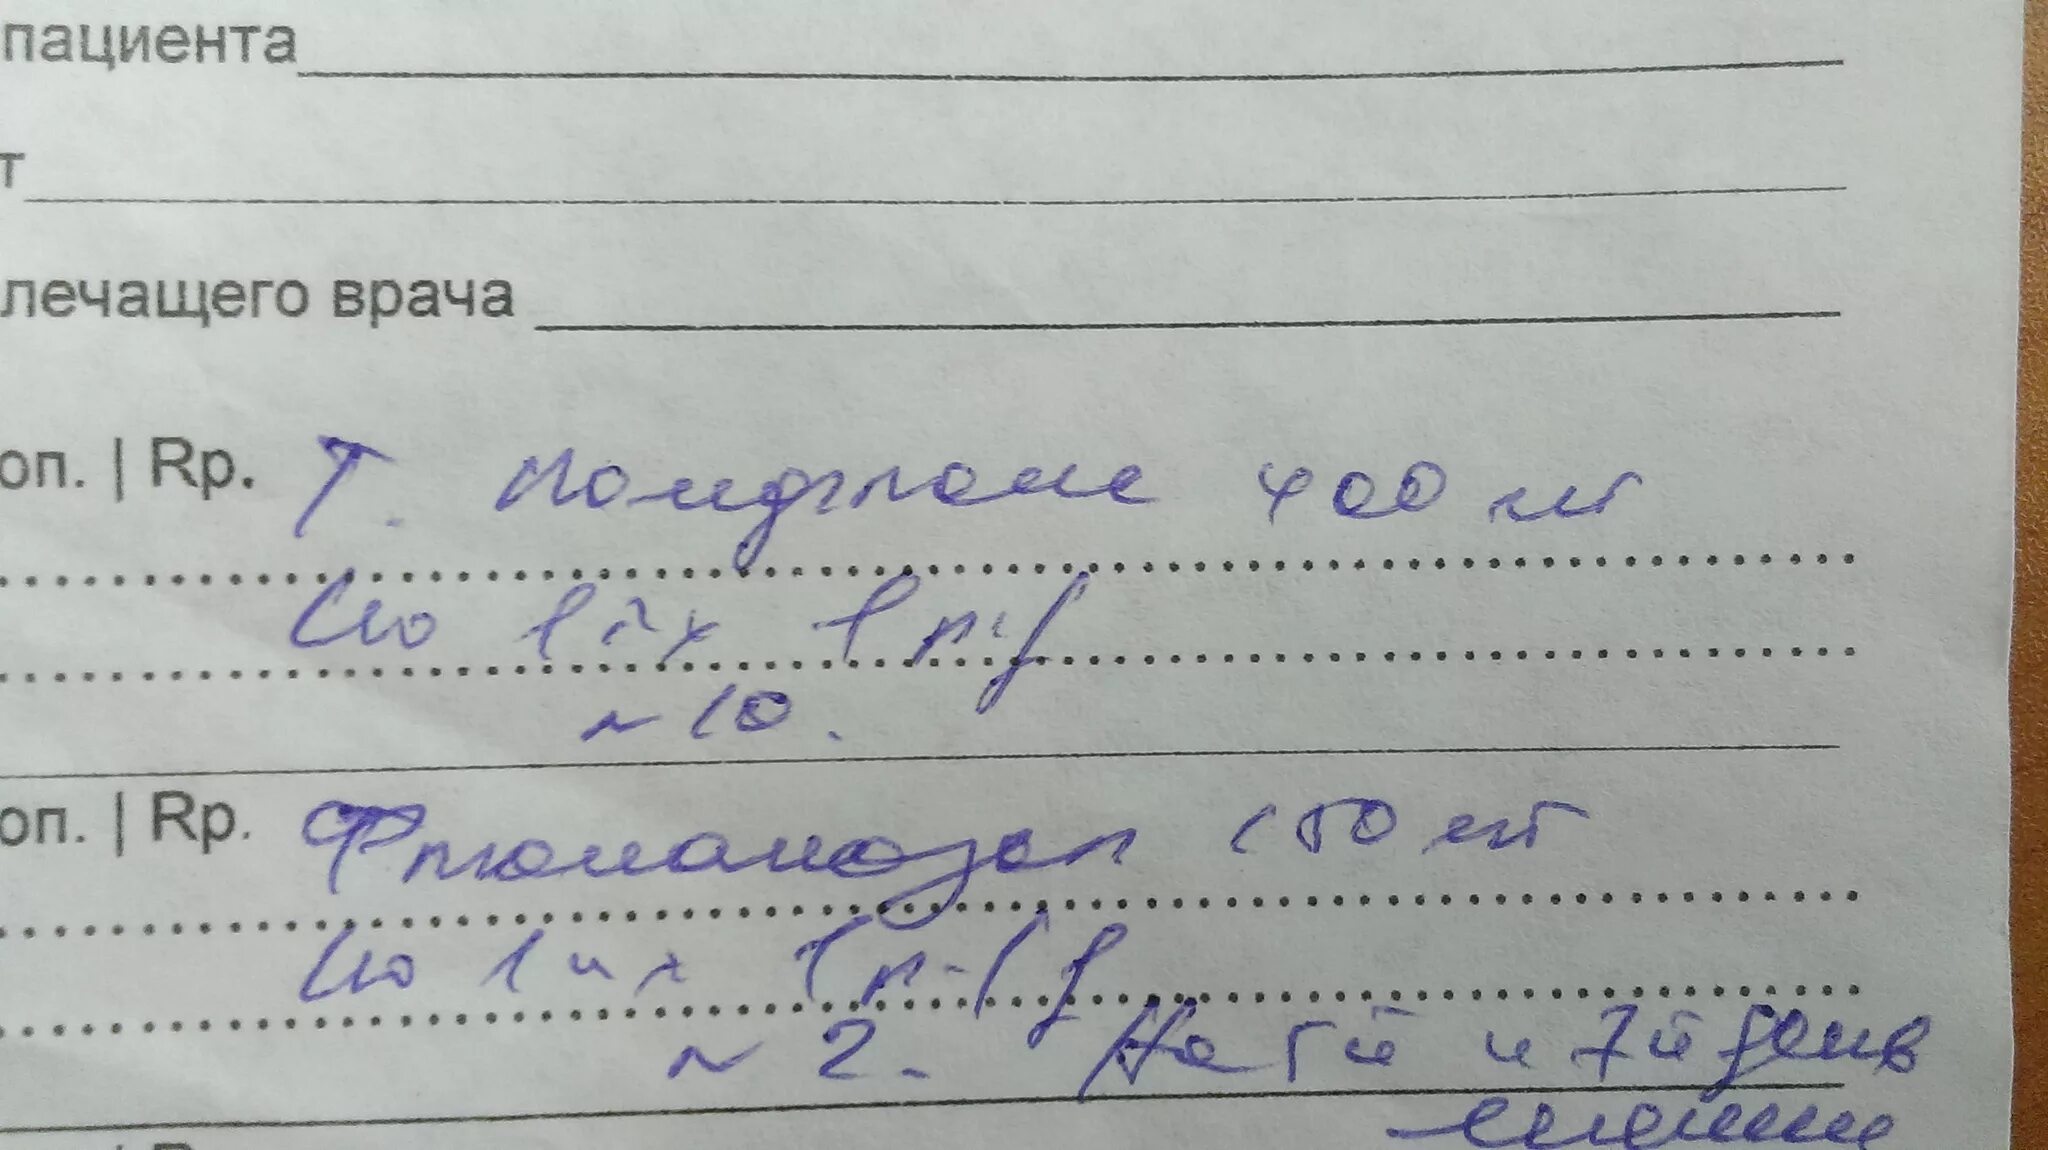 пациента
т
лечащего врача
оп. | Rp. Т. 400 мг
По 1 т х 1 р.д
№ 10.
оп. | Rp. Флюконазол 150 мг
По 1 х 1 р. д
№ 2. На 1й и 7й день